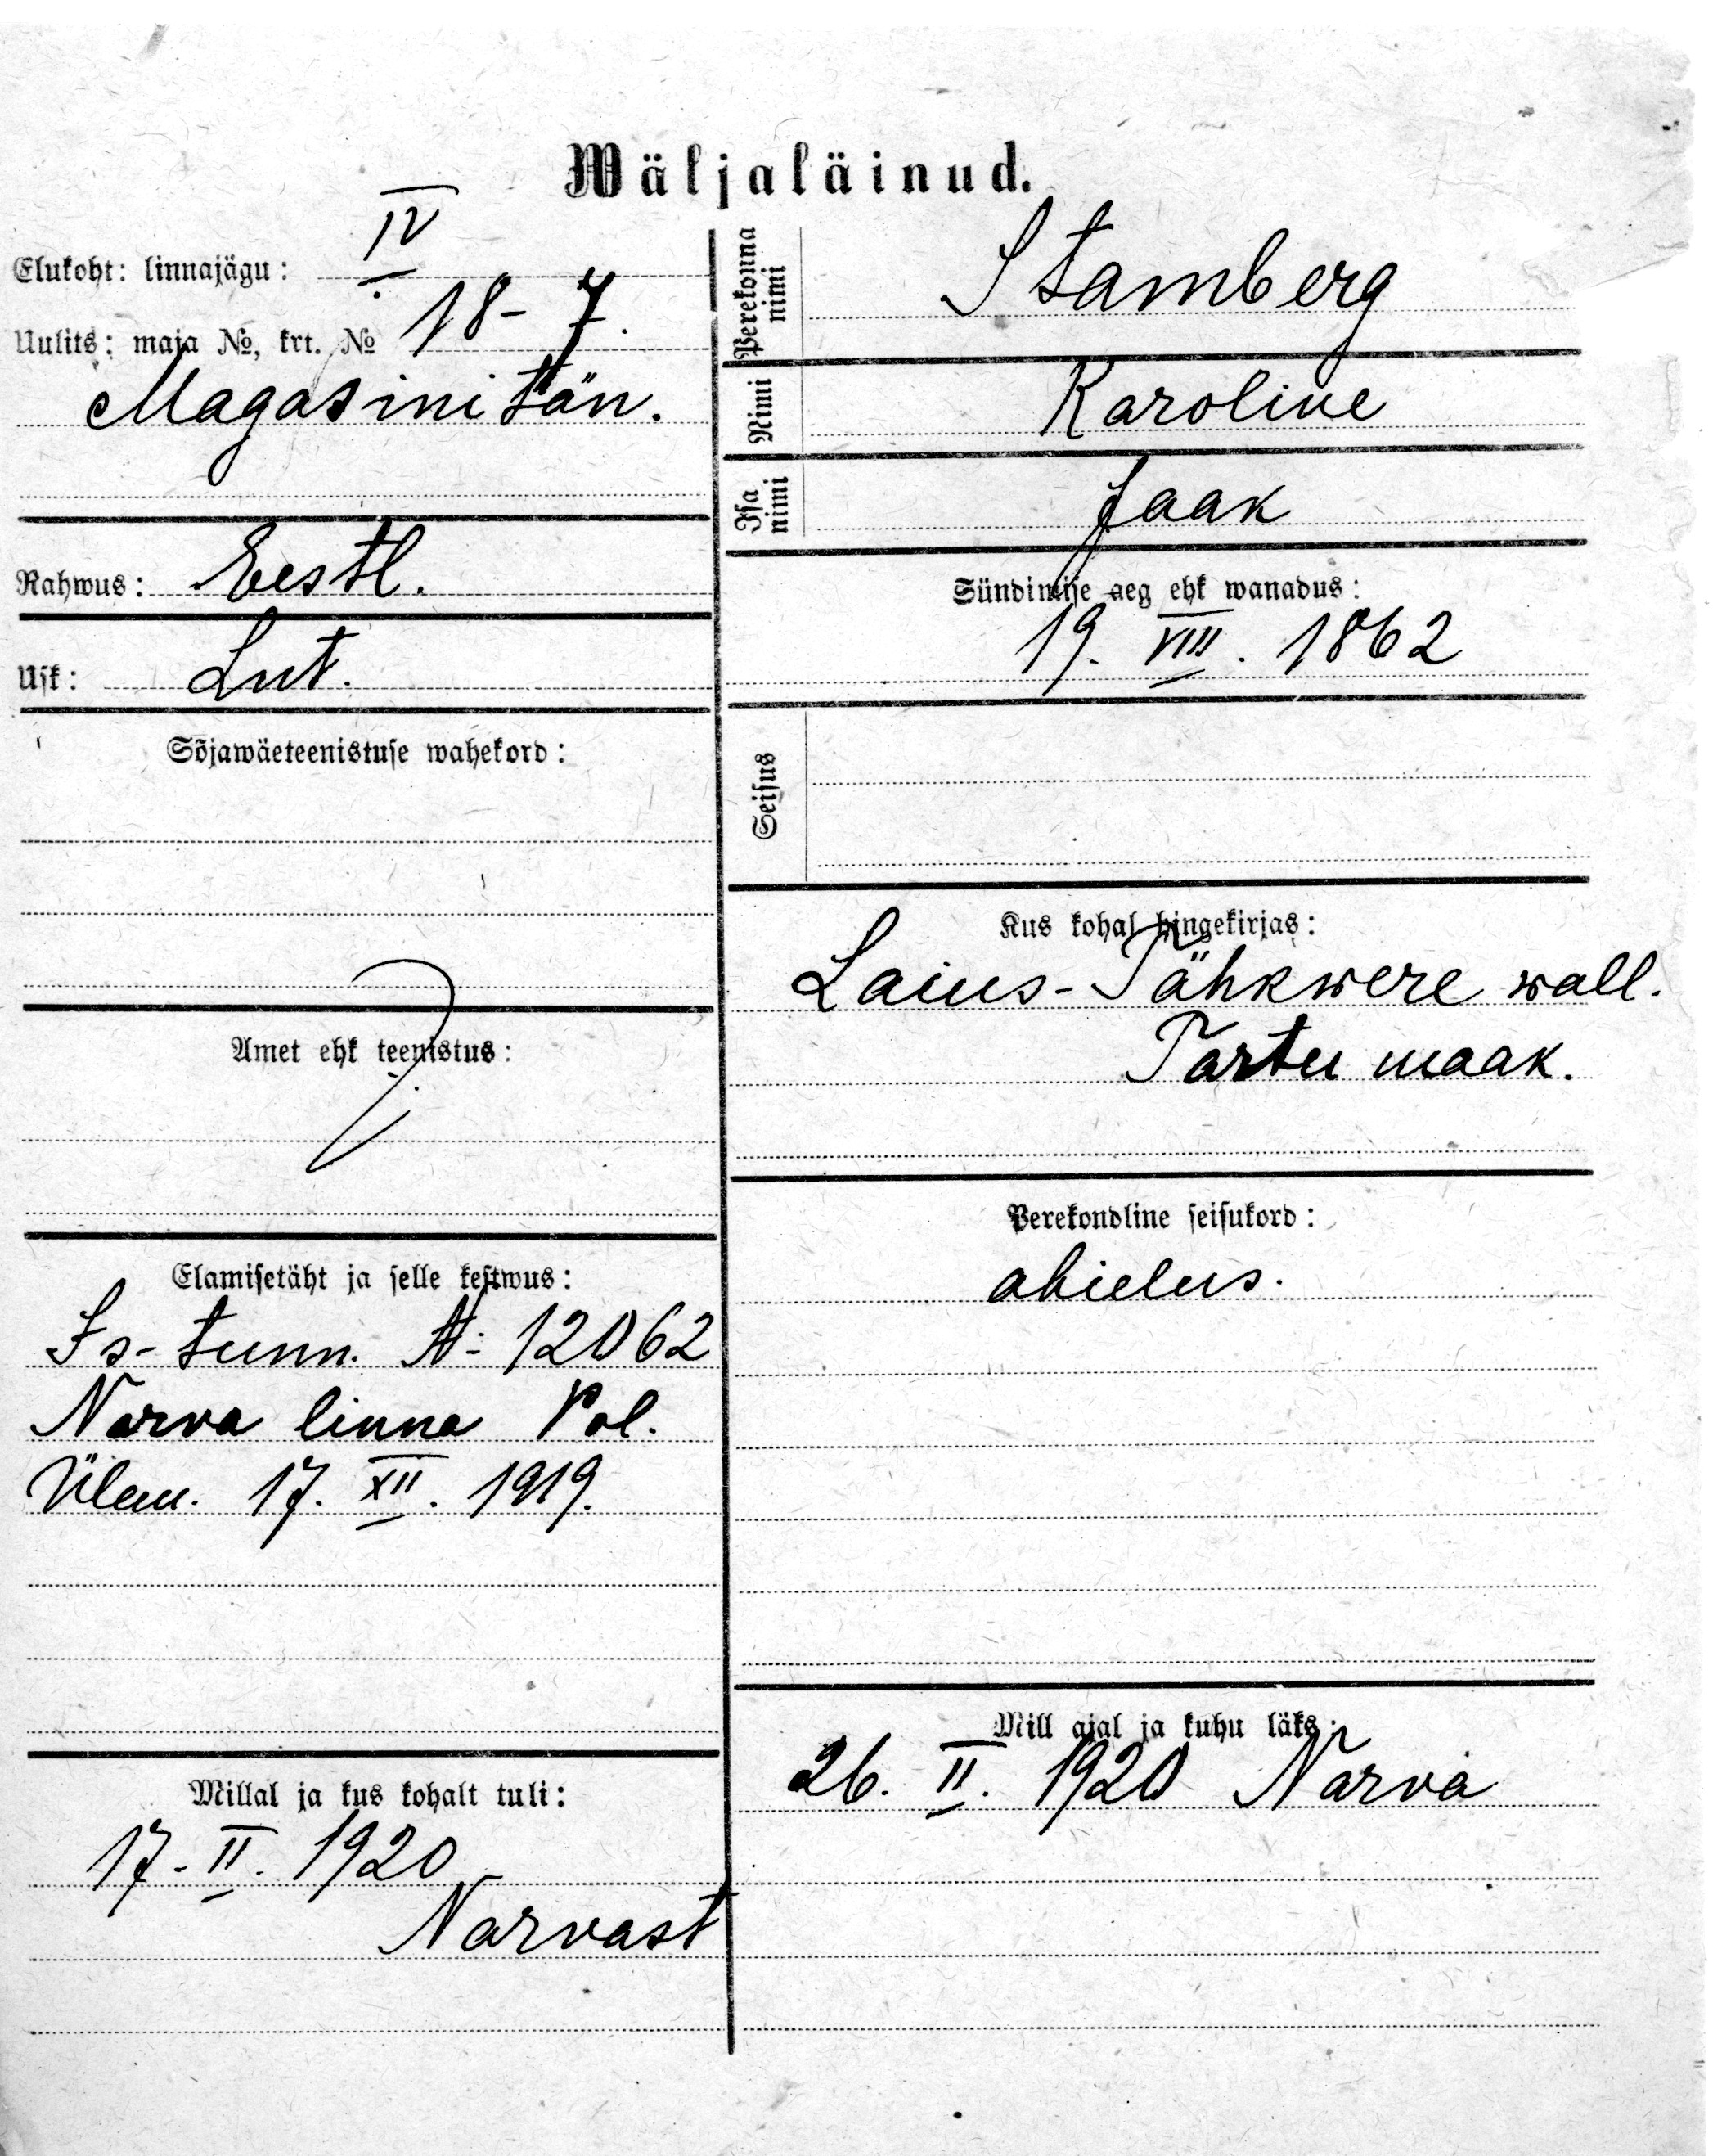 Wäljaläinud.
Elukoht: linnajägu: IV
Uulits: maja №, krt. № 18-7.
Magasini tän.
Rahwus: Eestl.
Usk: Lut.
Sõjawäeteenistuse wahekord:
Amet ehk teenistus:
Elamisetäht ja selle kestwus:
Is-tunn. A: 12062
Narva linna Pol.
Ülem. 17. XII. 1919.
Millal ja kus kohalt tuli:
17-II. 1920
Narvast
Perekonna nimi Stamberg
Nimi Karoline
Isa nimi Jaak
Sündimise aeg ehk wanadus:
19. VIII. 1862
Seisus
Kus kohal hingekirjas:
Laius-Tähkwere wall.
Tartu maak.
Perekondline seisukord:
abielus.
Mill ajal ja kuhu läks:
26. II. 1920 Narva